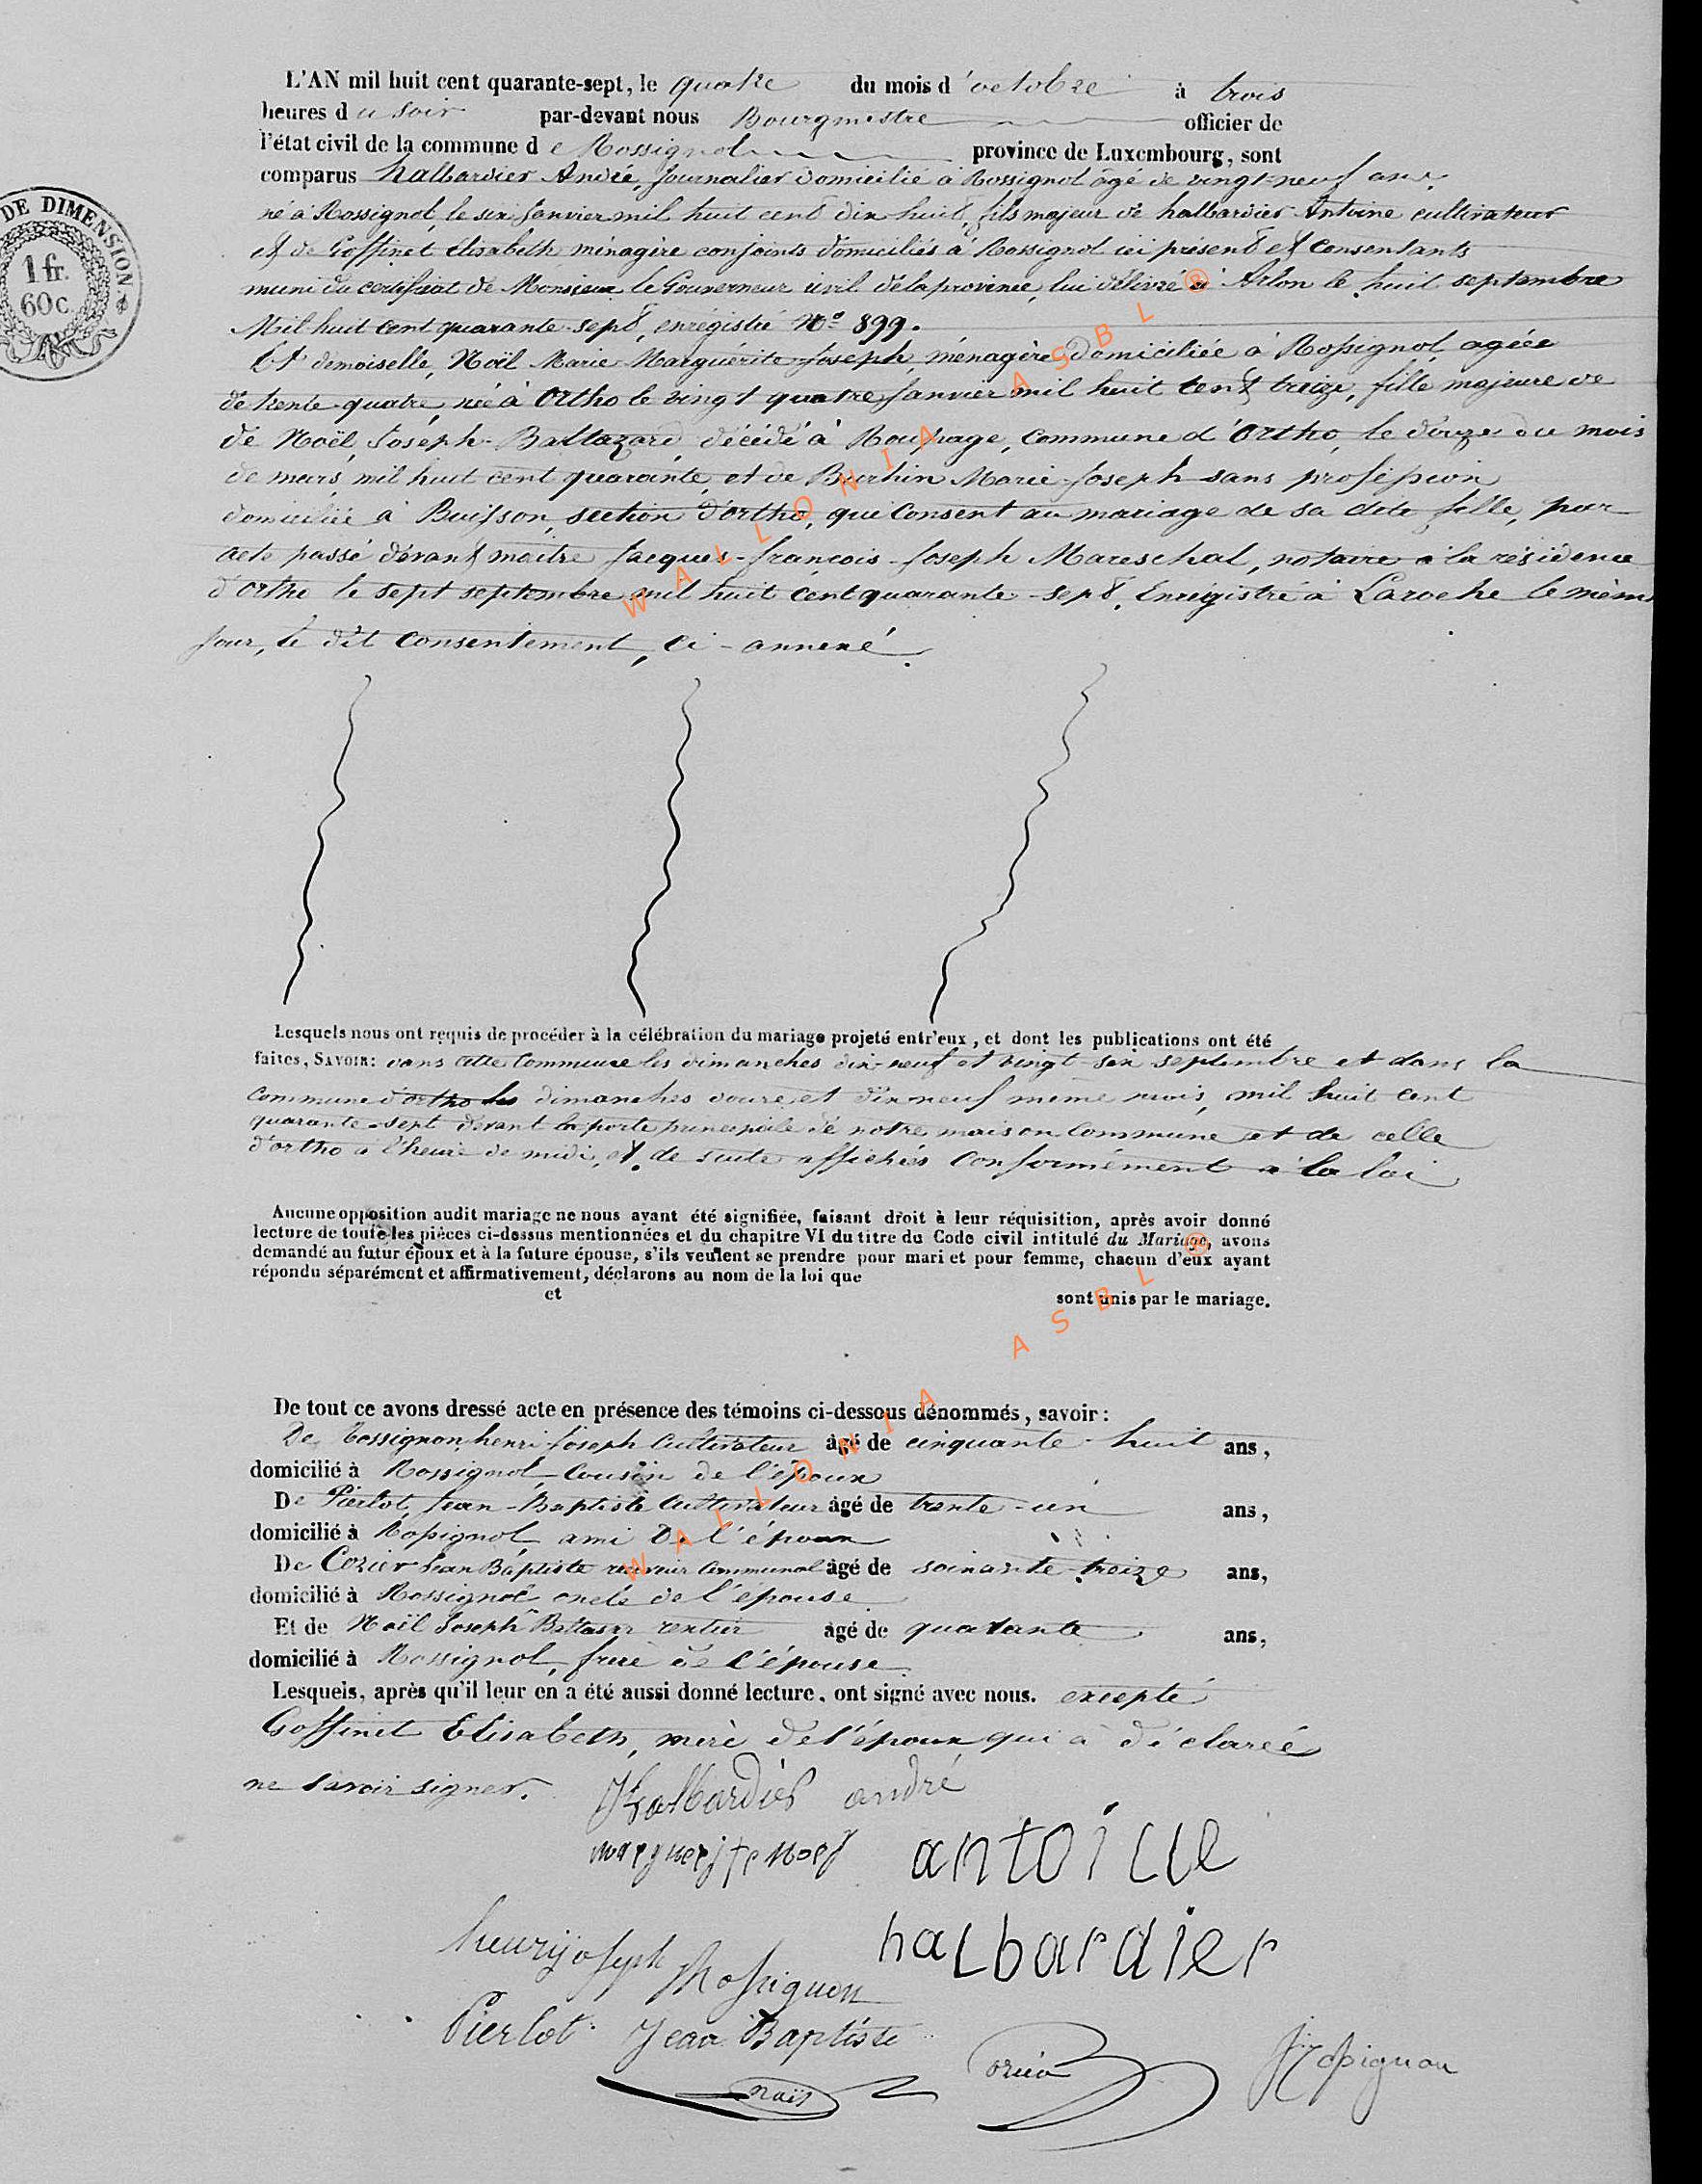 DE DIMENSION
1 fr.
60 c.
L'AN mil huit cent quarante-sept, le quatre du mois d'octobre à trois
heures du soir par-devant nous Bourgmestre officier de
l'état civil de la commune de Rossignol province de Luxembourg, sont
comparus halbardier André, Journalier domicilié à Rossignol âgé de vingt-neuf ans,
né à Rossignol, le six Janvier mil huit cent dix huit, fils majeur de halbardier Antoine cultivateur
et de Goffinet Elisabeth ménagère conjoints domiciliés à Rossignol ici présent et Consentants
muni du certificat de Monsieur le Gouverneur civil de la province, lui délivré à Arlon le huit septembre
Mil huit cent quarante-sept, enrégistré N° 899.
Et demoiselle, Noël Marie Marguérite Joseph, ménagère domiciliée à Rossignol agée
de trente-quatre, née à Ortho le vingt quatre Janvier mil huit cent treize, fille majeure de
de Noël, Joseph-Baltazard, décédé à Roupage, Commune d'Ortho, le douze du mois
de mars, mil huit cent quarante, et de Burhin Marie-Joseph sans profession
domiciliée à Buisson, section d'ortho, qui Consent au mariage de sa dite fille, par
acte passé dévant maitre Jacques-françois-Joseph Mareschal, notaire à la résidence
d'Ortho le sept septembre mil huit cent quarante-sept. Enrégistré à Laroche le même
Jour, le dit Consentement, ci-annexé.
Lesquels nous ont requis de procéder à la célébration du mariage projeté entr'eux, et dont les publications ont été
faites, SAVOIR: dans cette Commune les dimanches dix-neuf et vingt-six septembre et dans la
Commune d'ortho les dimanches douze et dix neuf même mois, mil huit cent
quarante-sept dévant la porte principale de notre maison Commune et de celle
d'ortho à l'heure de midi, et de suite affichés Conformément à la loi
Aucune opposition audit mariage ne nous ayant été signifiée, faisant droit à leur réquisition, après avoir donné
lecture de toute les pièces ci-dessus mentionnées et du chapitre VI du titre du Code civil intitulé du Mariage, avons
demandé au futur époux et à la future épouse, s'ils veulent se prendre pour mari et pour femme, chacun d'eux ayant
répondu séparément et affirmativement, déclarons au nom de la loi que
et sont unis par le mariage.
De tout ce avons dressé acte en présence des témoins ci-dessous dénommés, savoir:
De Rossignon henri Joseph Cultivateur âgé de cinquante-huit ans,
domicilié à Rossignol, Cousin de l'époux
De Pierlot, Jean-Baptiste Cultivateur âgé de trente-un ans,
domicilié à Rossignol ami de l'époux
De Cozier Jean Baptiste receveur Communal âgé de soixante-treize ans,
domicilié à Rossignol oncle de l'épouse
Et de Noël Joseph Baltazar rentier âgé de quarante ans,
domicilié à Rossignol, frère de l'épouse
Lesquels, après qu'il leur en a été aussi donné lecture, ont signé avec nous. excepté
Goffinet Elisabeth, mère de l'époux qui a déclarée
ne savoir signer.
Halbardier andré
marguerite Noel
antoine
halbardier
henry joseph Rossignon
Pierlot Jean Baptiste
Rossignon
WALLONIA ASBL ®
WALLONIA ASBL ®